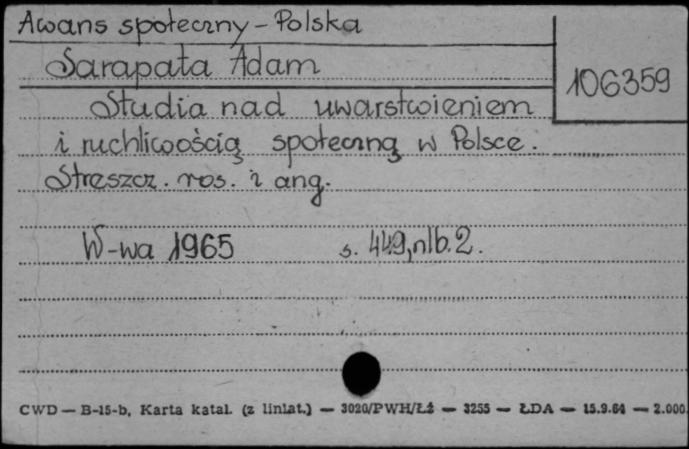 Awans społeczny - Polska
Sarapata Adam
106359
Studia nad uwarstwieniem
i ruchliwością społeczną w Polsce.
Streszcz. ros. i ang.
W-wa 1965 s. 449, nlb. 2.
CWD — B-15-b, Karta katal. (z liniat.) — 3020/PWH/Łź — 3255 — ŁDA — 15.9.64 — 2.000.